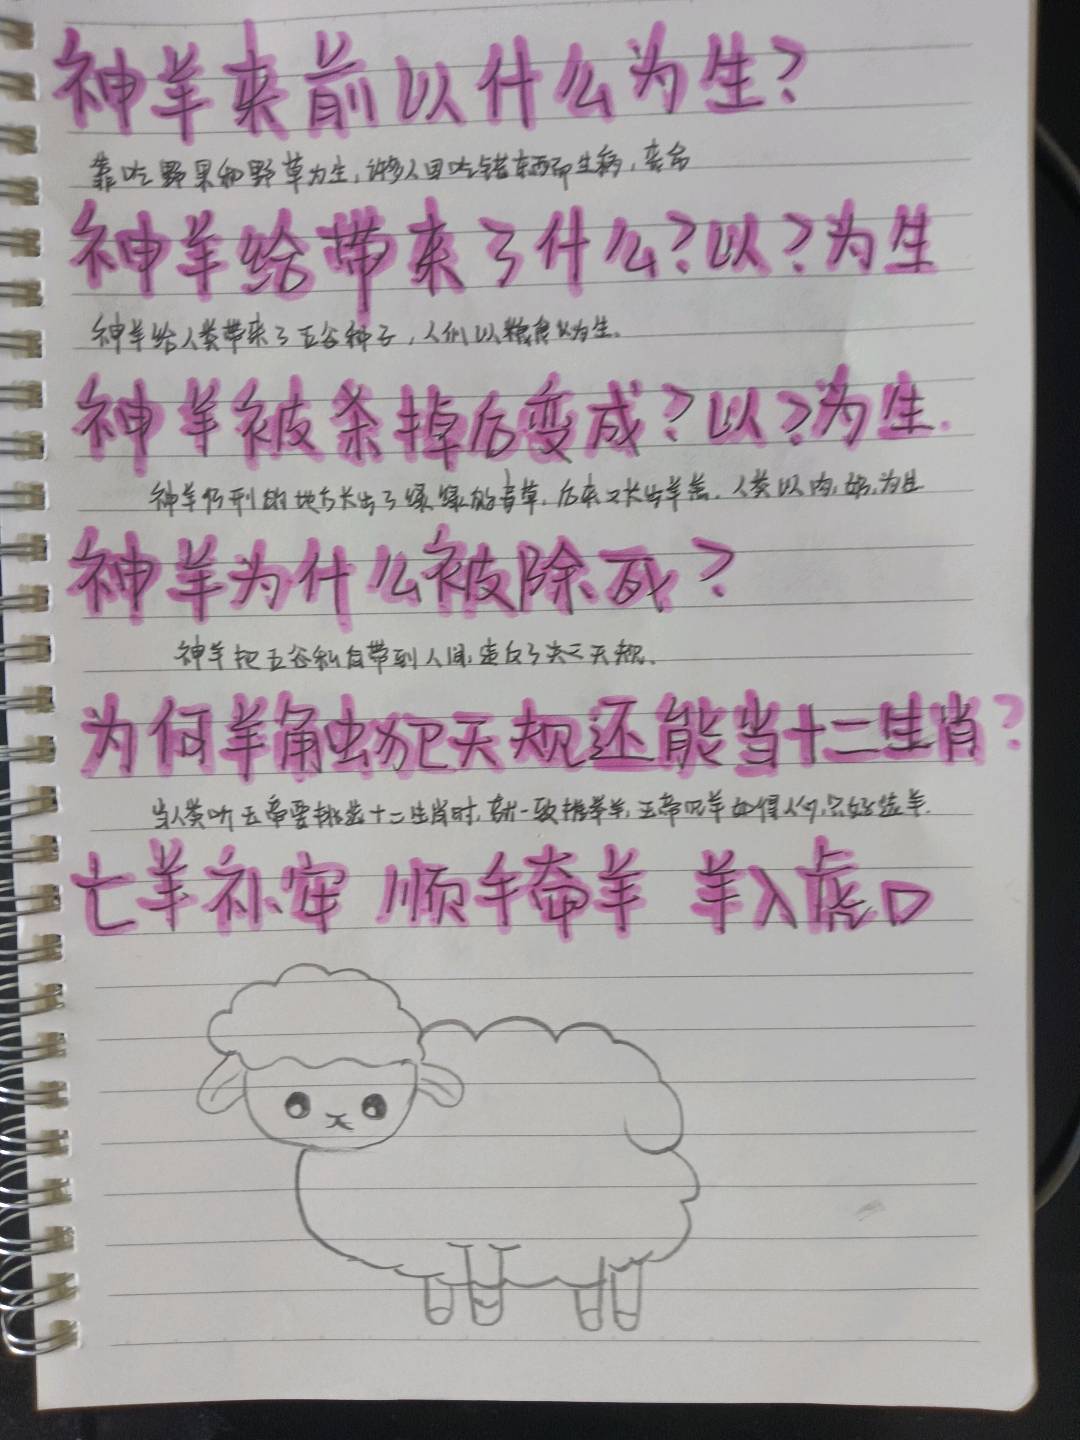 神羊来前以什么为生?
靠吃野果和野草为生,许多人因吃错东西而生病,丧命
神羊给带来了什么?以?为生
神羊给人类带来了五谷种子,人们以粮食以为生.
神羊被杀掉后变成?以?为生.
神羊行刑的地方长出了绿绿的青草,后来又长出羊羔.人类以肉,奶,为生
神羊为什么被除死?
神羊把五谷私自带到人间,违反了天规.
为何羊角虫犯天规还能当十二生肖?
当人类听玉帝要挑选十二生肖时,就一致推举羊,玉帝见羊如得人心,只好选羊.
亡羊补牢 顺手牵羊 羊入虎口